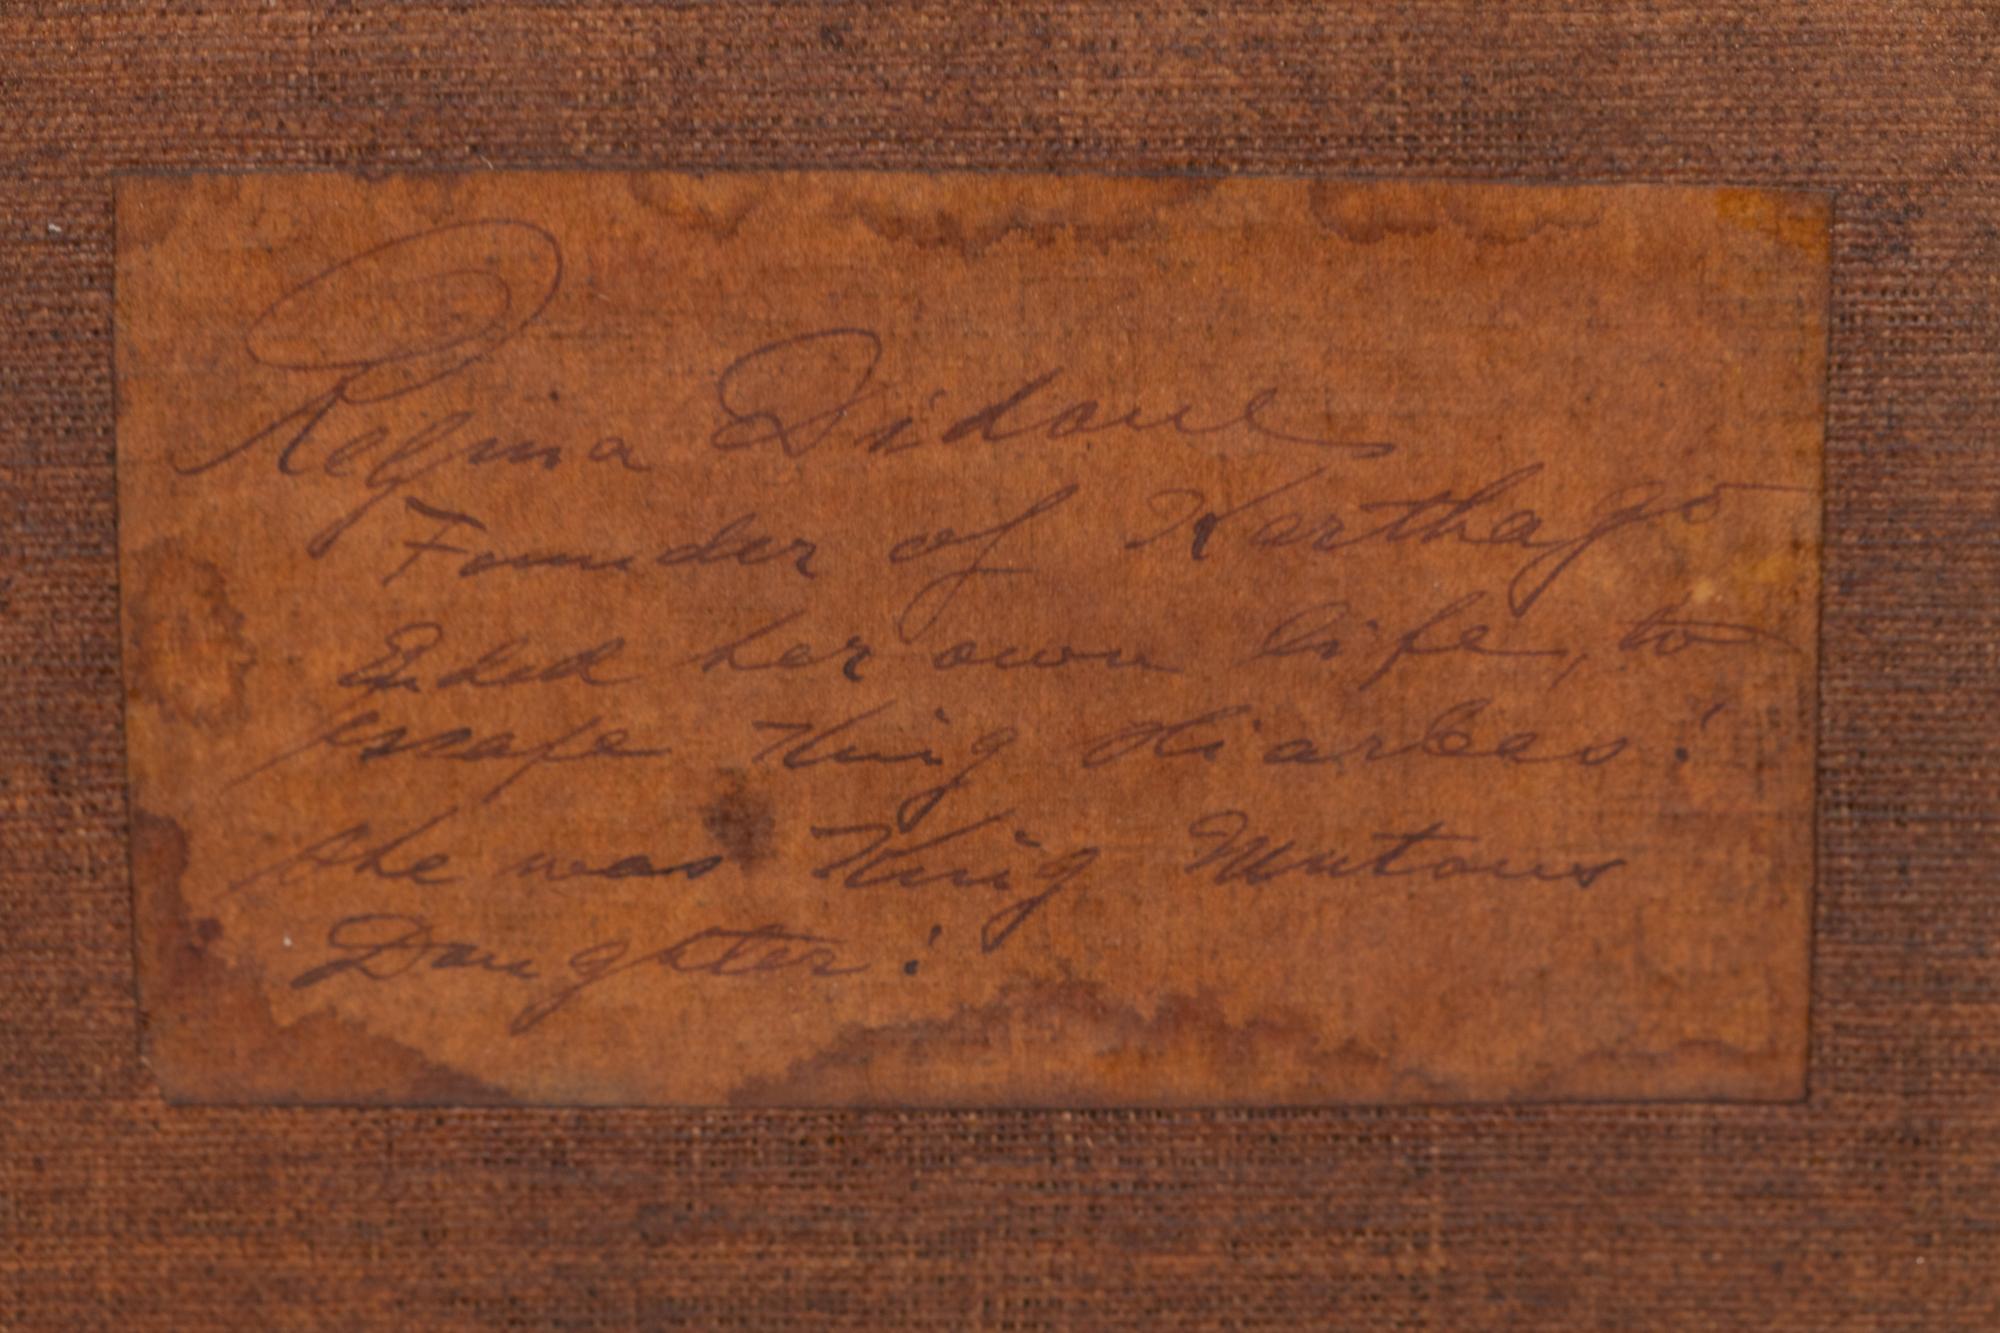 Regina Didone
Founder of Karthago
Ended her own life, to
escape King Hiarbas!
she was King Mutons
Daughter!